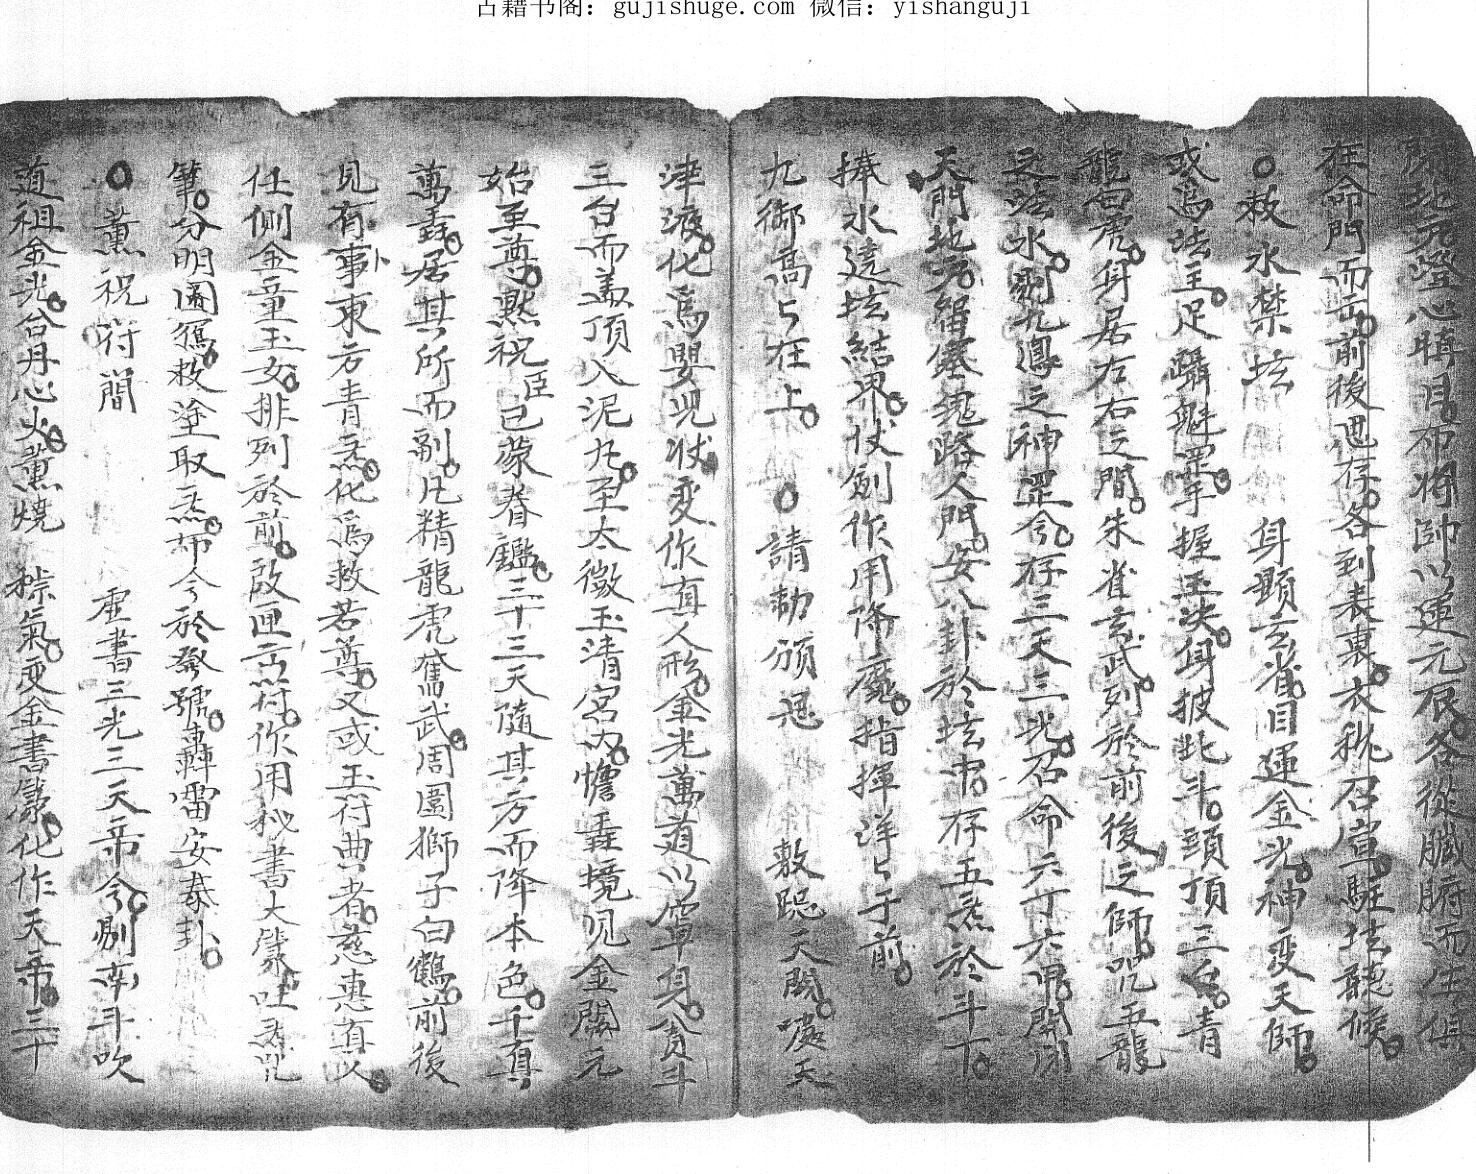 古籍书阁：gujishuge.com 微信：yishanguji
地元燈心暗月布將帥以運元辰各從臟腑而生俱
在命門而出前後迎存各到表裏衣税召宣駐坛聽候
○敕水禁坛 身顕玄省目運金光神変天師
或爲法主足躡魁罡手握玉决身披北斗頭頂三台青
龍白虎身居左右之間朱雀玄武列於前後之師咒五龍
之法水剔九鳳之神罡令存三天三光召命六丁六甲開閉
天門地元留塞鬼路人門安八卦於坛中存五炁於斗下
捧水遶坛結界仗劍作用降魔指揮洋〻于前
九御高〻在上 ○請勅頒恩 敷跽天閣噀天
津液化爲嬰児状変作真人形金光萬道以寧身貪斗
三台而盖頂入泥丸至太微玉清宮内憺 境見金闕元
始至尊黙祝臣已蒙眷鑑三十三天隨其方而降本色千真
萬 居其所而剔凡精龍虎奮武周圍獅子白鶴前後
見有事東方青炁化爲救苦尊又或玉符典者慈惠真人
任側金童玉女排列於前啟匣点符作用秘書大篆吐炁咒
筆分明圖 救塗取炁 今於發號轟雷安泰卦
○薰祝符簡 虚書三光三天帝令剔南斗吹
道祖金光合丹心火薰燒 粽氣变金書 化作天帝三十